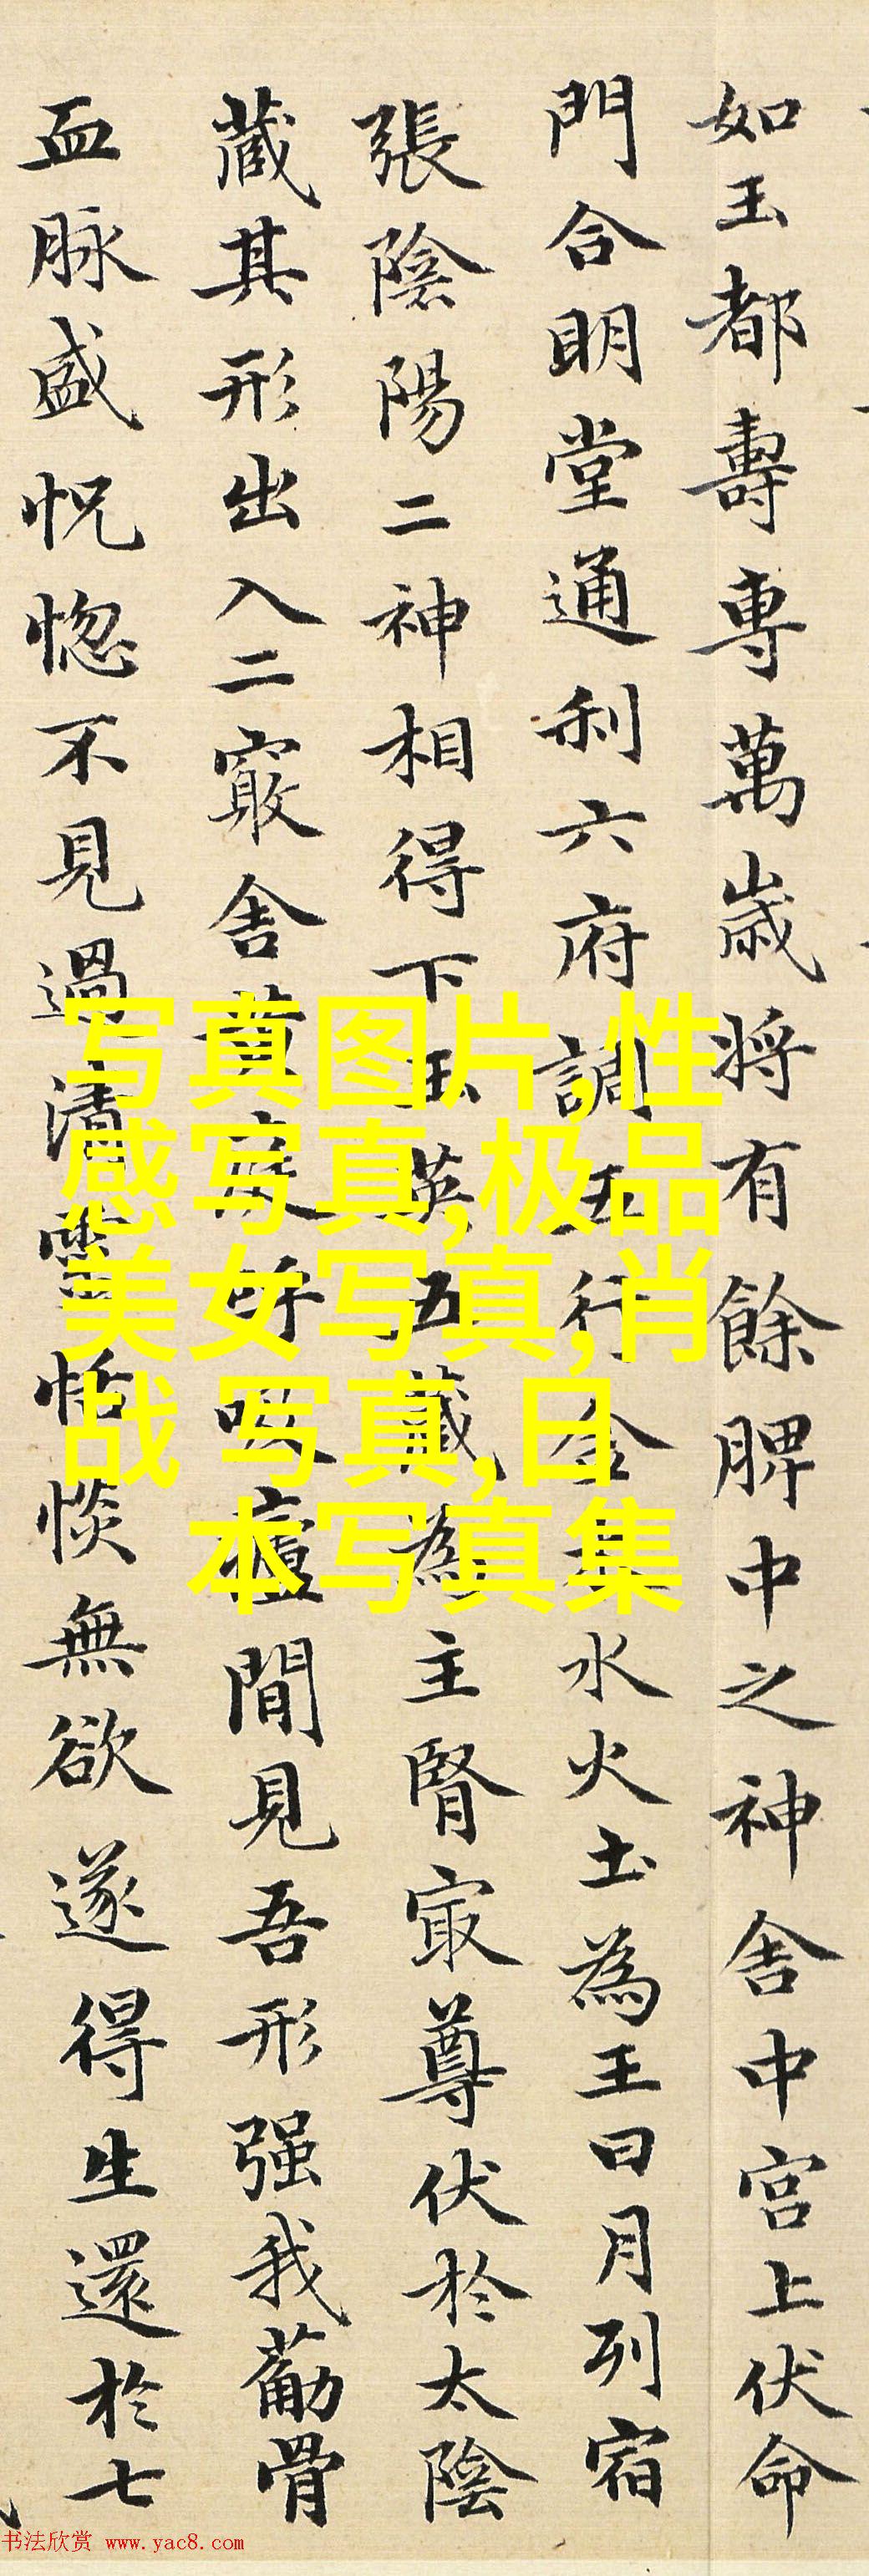 如玉都壽專萬歲将有餘脾中之神舍中宫上伏命
門合明堂通利六府調五行金木水火土為王日月列宿
張陰陽二神相得下玉英五藏為主腎冣尊伏於太陰
藏其形出入二竅舍黄庭呼吸廬間見吾形强我筋骨
血脉盛怳惚不見過清靈恬惔無欲遂得生還於七
写真图片,性
感写真,极品
美女写真,肖
战 写真,日
本写真集
书法欣赏 www.yac8.com